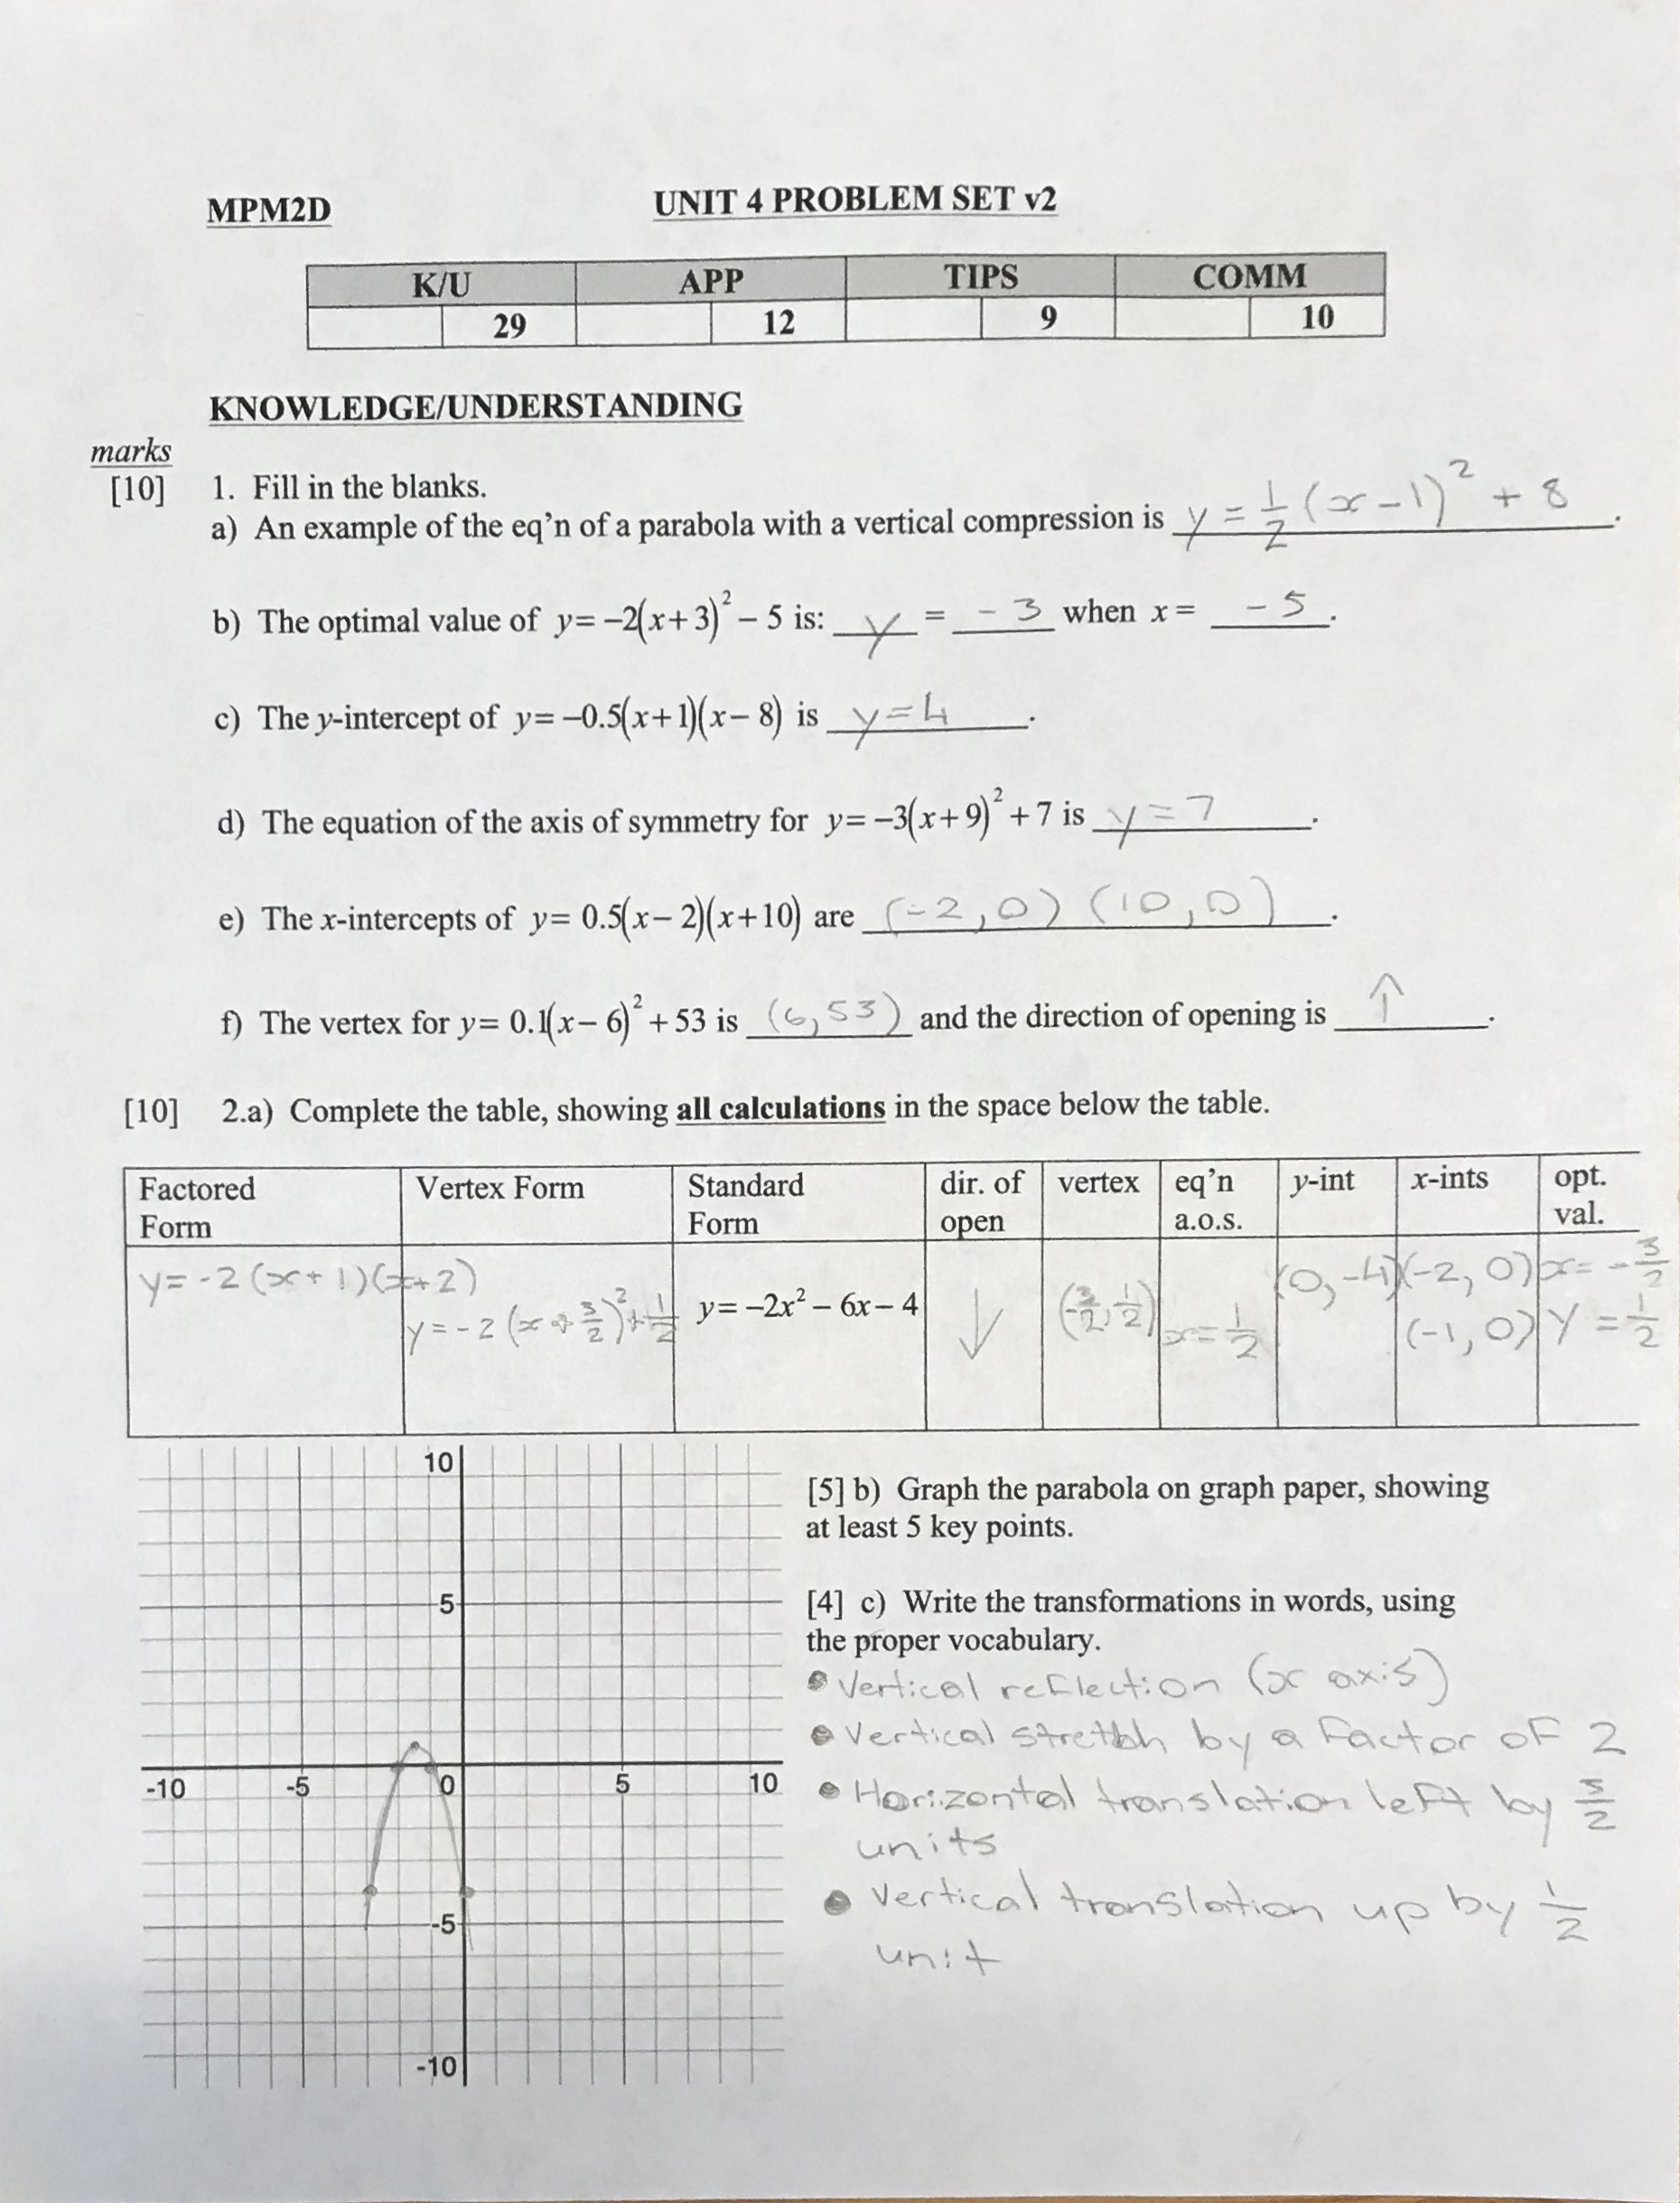 MPM2D UNIT 4 PROBLEM SET v2
K/U APP TIPS COMM
29 12 9 10
KNOWLEDGE/UNDERSTANDING
marks
[10] 1. Fill in the blanks.
a) An example of the eq'n of a parabola with a vertical compression is y = 1/2 (x - 1)² + 8.
b) The optimal value of y = –2(x + 3)² – 5 is: y = - 3 when x = - 5.
c) The y-intercept of y = –0.5(x + 1)(x – 8) is y = 4.
d) The equation of the axis of symmetry for y = –3(x + 9)² + 7 is y = 7.
e) The x-intercepts of y = 0.5(x – 2)(x + 10) are (-2, 0) (10, 0).
f) The vertex for y = 0.1(x – 6)² + 53 is (6, 53) and the direction of opening is ↑.
[10] 2.a) Complete the table, showing all calculations in the space below the table.
Factored Form
Vertex Form
Standard Form
dir. of open
vertex
eq'n a.o.s.
y-int
x-ints
opt. val.
y = -2 (x + 1)(x + 2)
y = -2 (x + 3/2)² + 1/2
y = –2x² – 6x – 4
↓
(-3/2, 1/2)
x = 1/2
(0, -4)
(-2, 0)
(-1, 0)
x = -3/2
y = 1/2
10
5
-10 -5 0 5 10
-5
-10
[5] b) Graph the parabola on graph paper, showing
at least 5 key points.
[4] c) Write the transformations in words, using
the proper vocabulary.
• Vertical reflection (x axis)
• Vertical stretch by a factor of 2
• Horizontal translation left by 3/2
units
• Vertical translation up by 1/2
unit